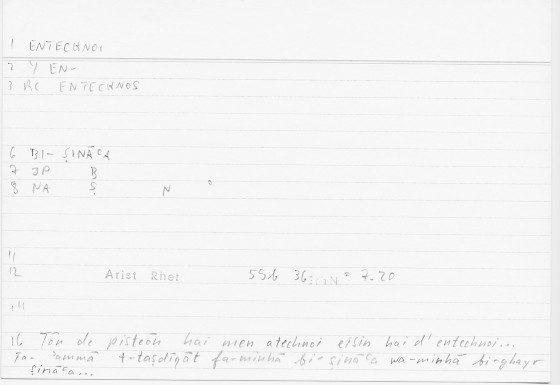 1 ENTECHNOI
2 Y EN-
3 RC ENTECHNOS
6 BI- ṢINĀʿA
7 JP B
8 NA Ṣ N
11
12 Arist Rhet 55b 36 = 7.20
14
16 Tōn de pisteōn hai men atechnoi eisin hai d' entechnoi...
fa- ʾammā t-taṣdīqāt fa-minhā bi-ṣināʿa wa-minhā bi-ghayr
ṣināʿa...